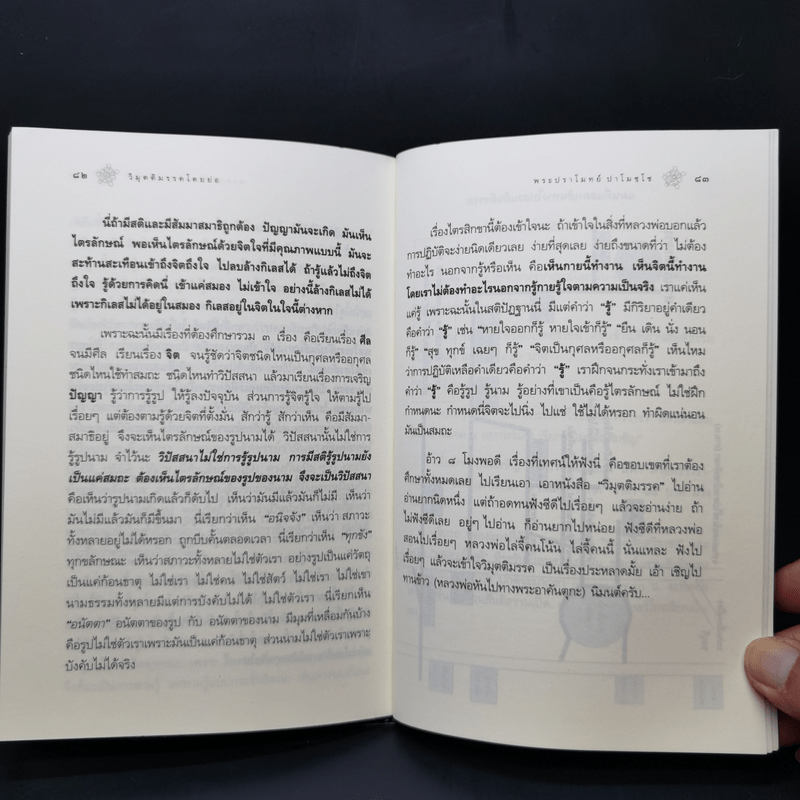 ๘๒ วิมุตติมรรคโดยย่อ
นี่ถ้ามีสติและมีสัมมาสมาธิถูกต้อง ปัญญามันจะเกิด มันเห็น
ไตรลักษณ์ พอเห็นไตรลักษณ์ด้วยจิตใจที่มีคุณภาพแบบนี้ มันจะ
สะท้านสะเทือนเข้าถึงจิตถึงใจ ไปลบล้างกิเลสได้ ถ้ารู้แล้วไม่ถึงจิต
ถึงใจ รู้ด้วยการคิดนี่ เข้าแค่สมอง ไม่เข้าใจ อย่างนี้ล้างกิเลสไม่ได้
เพราะกิเลสไม่ได้อยู่ในสมอง กิเลสอยู่ในจิตในใจนี่ต่างหาก
เพราะฉะนั้นมีเรื่องที่ต้องศึกษารวม ๓ เรื่อง คือเรียนเรื่อง ศีล
จนมีศีล เรียนเรื่อง จิต จนรู้ชัดว่าจิตชนิดไหนเป็นกุศลหรืออกุศล
ชนิดไหนใช้ทำสมถะ ชนิดไหนทำวิปัสสนา แล้วมาเรียนเรื่องการเจริญ
ปัญญา รู้ว่าการรู้รูป ให้รู้ลงปัจจุบัน ส่วนการรู้จิตรู้ใจ ให้ตามรู้ไป
เรื่อยๆ แต่ต้องตามรู้ด้วยจิตที่ตั้งมั่น สักว่ารู้ สักว่าเห็น คือมีสัมมา-
สมาธิอยู่ จึงจะเห็นไตรลักษณ์ของรูปนามได้ วิปัสสนานั้นไม่ใช่การ
รู้รูปนาม จำไว้นะ วิปัสสนาไม่ใช่การรู้รูปนาม การมีสติรู้รูปนามยัง
เป็นแค่สมถะ ต้องเห็นไตรลักษณ์ของรูปของนาม จึงจะเป็นวิปัสสนา
คือเห็นว่ารูปนามเกิดแล้วก็ดับไป เห็นว่ามันมีแล้วมันก็ไม่มี เห็นว่า
มันไม่มีแล้วมันก็มีขึ้นมา นี่เรียกว่าเห็น “อนิจจัง” เห็นว่า สภาวะ
ทั้งหลายอยู่ไม่ได้หรอก ถูกบีบคั้นตลอดเวลา นี่เรียกว่าเห็น “ทุกขัง”
ทุกขลักษณะ เห็นว่าสภาวะทั้งหลายไม่ใช่ตัวเรา อย่างรูปเป็นแค่วัตถุ
เป็นแค่ก้อนธาตุ ไม่ใช่เรา ไม่ใช่คน ไม่ใช่สัตว์ ไม่ใช่เรา ไม่ใช่เขา
นามธรรมทั้งหลายมีแต่การบังคับไม่ได้ ไม่ใช่ตัวเรา นี่เรียกเห็น
“อนัตตา” อนัตตาของรูป กับ อนัตตาของนาม มีมุมที่เหลื่อมกันบ้าง
คือรูปไม่ใช่ตัวเราเพราะมันเป็นแค่ก้อนธาตุ ส่วนนามไม่ใช่ตัวเราเพราะ
บังคับไม่ได้จริง
พระปราโมทย์ ปาโมชฺโช ๘๓
เรื่องไตรสิกขานี้ต้องเข้าใจนะ ถ้าเข้าใจในสิ่งที่หลวงพ่อบอกแล้ว
การปฏิบัติจะง่ายนิดเดียวเลย ง่ายที่สุดเลย ง่ายถึงขนาดที่ว่า ไม่ต้อง
ทำอะไร นอกจากรู้หรือเห็น คือเห็นกายนี้ทำงาน เห็นจิตนี้ทำงาน
โดยเราไม่ต้องทำอะไรนอกจากรู้กายรู้ใจตามความเป็นจริง เราแค่เห็น
แค่รู้ เพราะฉะนั้นในสติปัฏฐานนี่ มีแต่คำว่า “รู้” มีกิริยาอยู่คำเดียว
คือคำว่า “รู้” เช่น “หายใจออกก็รู้ หายใจเข้าก็รู้” “ยืน เดิน นั่ง นอน
ก็รู้” “สุข ทุกข์ เฉยๆ ก็รู้” “จิตเป็นกุศลหรืออกุศลก็รู้” เห็นไหม
ว่าการปฏิบัติเหลือคำเดียวคือคำว่า “รู้” เราฝึกจนกระทั่งเราเข้ามาถึง
คำว่า “รู้” คือรู้รูป รู้นาม รู้อย่างที่เขาเป็นคือรู้ไตรลักษณ์ ไม่ใช่ฝึก
กำหนดนะ กำหนดนี่จิตจะไปนิ่ง ไปแช่ ใช้ไม่ได้หรอก ทำผิดแน่นอน
มันเป็นสมถะ
อ้าว ๘ โมงพอดี เรื่องที่เทศน์ให้ฟังนี่ คือขอบเขตที่เราต้อง
ศึกษาทั้งหมดเลย ไปเรียนเอา เอาหนังสือ “วิมุตติมรรค” ไปอ่าน
อ่านยากนิดหนึ่ง แต่ถ้าอดทนฟังซีดีไปเรื่อยๆ แล้วจะอ่านง่าย ถ้า
ไม่ฟังซีดีเลย อยู่ๆ ไปอ่าน ก็อ่านยากไปหน่อย ฟังซีดีที่หลวงพ่อ
สอนไปเรื่อยๆ หลวงพ่อไล่จี้คนโน้น ไล่จี้คนนี้ นั่นแหละ ฟังไป
เรื่อยๆ แล้วจะเข้าใจวิมุตติมรรค เป็นเรื่องประหลาดมั้ย เอ้า เชิญไป
ทานข้าว (หลวงพ่อหันไปทางพระอาคันตุกะ) นิมนต์ครับ...